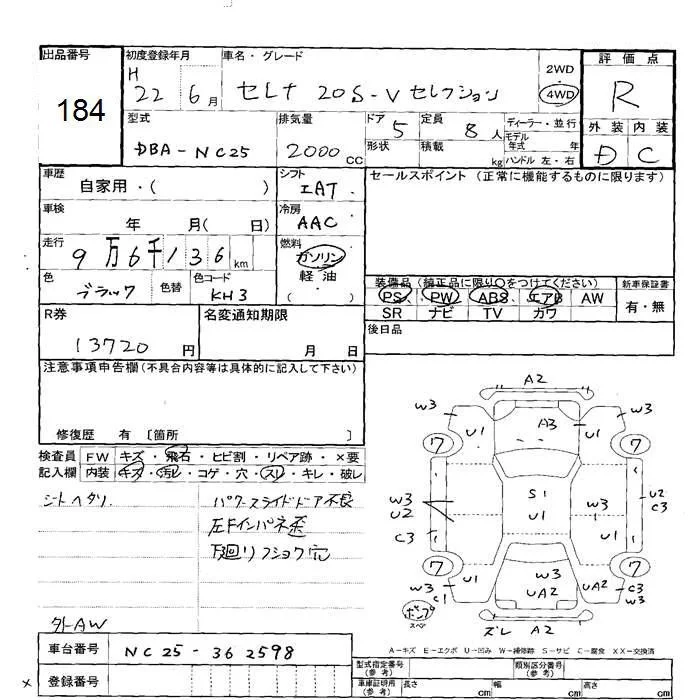 出品番号
184
初度登録年月
H
22 6月
車名・グレード
セレナ 20S-Vセレクション
2WD
4WD
評価点
R
外装 内装
D C
型式
DBA-NC25
排気量
2000cc
ドア
5
定員
8人
ディーラー・並行
モデル年式 年
形状
積載 kg
ハンドル 左・右
車歴
自家用・( )
シフト
IAT
セールスポイント (正常に機能するものに限ります)
車検
年 月( 日)
冷房
AAC
走行
9万6千136km
燃料
ガソリン
軽油
( )
色
ブラック
色替
色コード
KH3
装備品(純正品に限り○をつけてください)
PS PW ABS エアB AW
SR ナビ TV カワ
新車保証書
有・無
後日品
R券
13720円
名変通知期限
月 日
注意事項申告欄(不具合内容等は具体的に記入して下さい)
修復歴 有 〔箇所 〕
検査員記入欄
FW キズ・飛石・ヒビ割・リペア跡・×要
内装 キズ・汚レ・コゲ・穴・スリ・キレ・破レ
シートヘタリ
パワースライドドア不良
左Fインパネ歪
下廻りフショク穴
外AW
A2
W3 W3
U1 A3 U1
7 7
W3
U2
C3
S1
U1
W3
U2
C3
7 7
W3
C1
U1
W3
UA2
UA2
C3
W3
ズレ A2
スペア
A-キズ E-エクボ U-凹み W-補修跡 S-サビ C-腐食 XX-交換済
車台番号
NC25-362598
登録番号
×
型式指定番号
(参考)
類別区分番号
(参考)
車庫証明用
(参考)
長さ cm
幅 cm
高さ cm